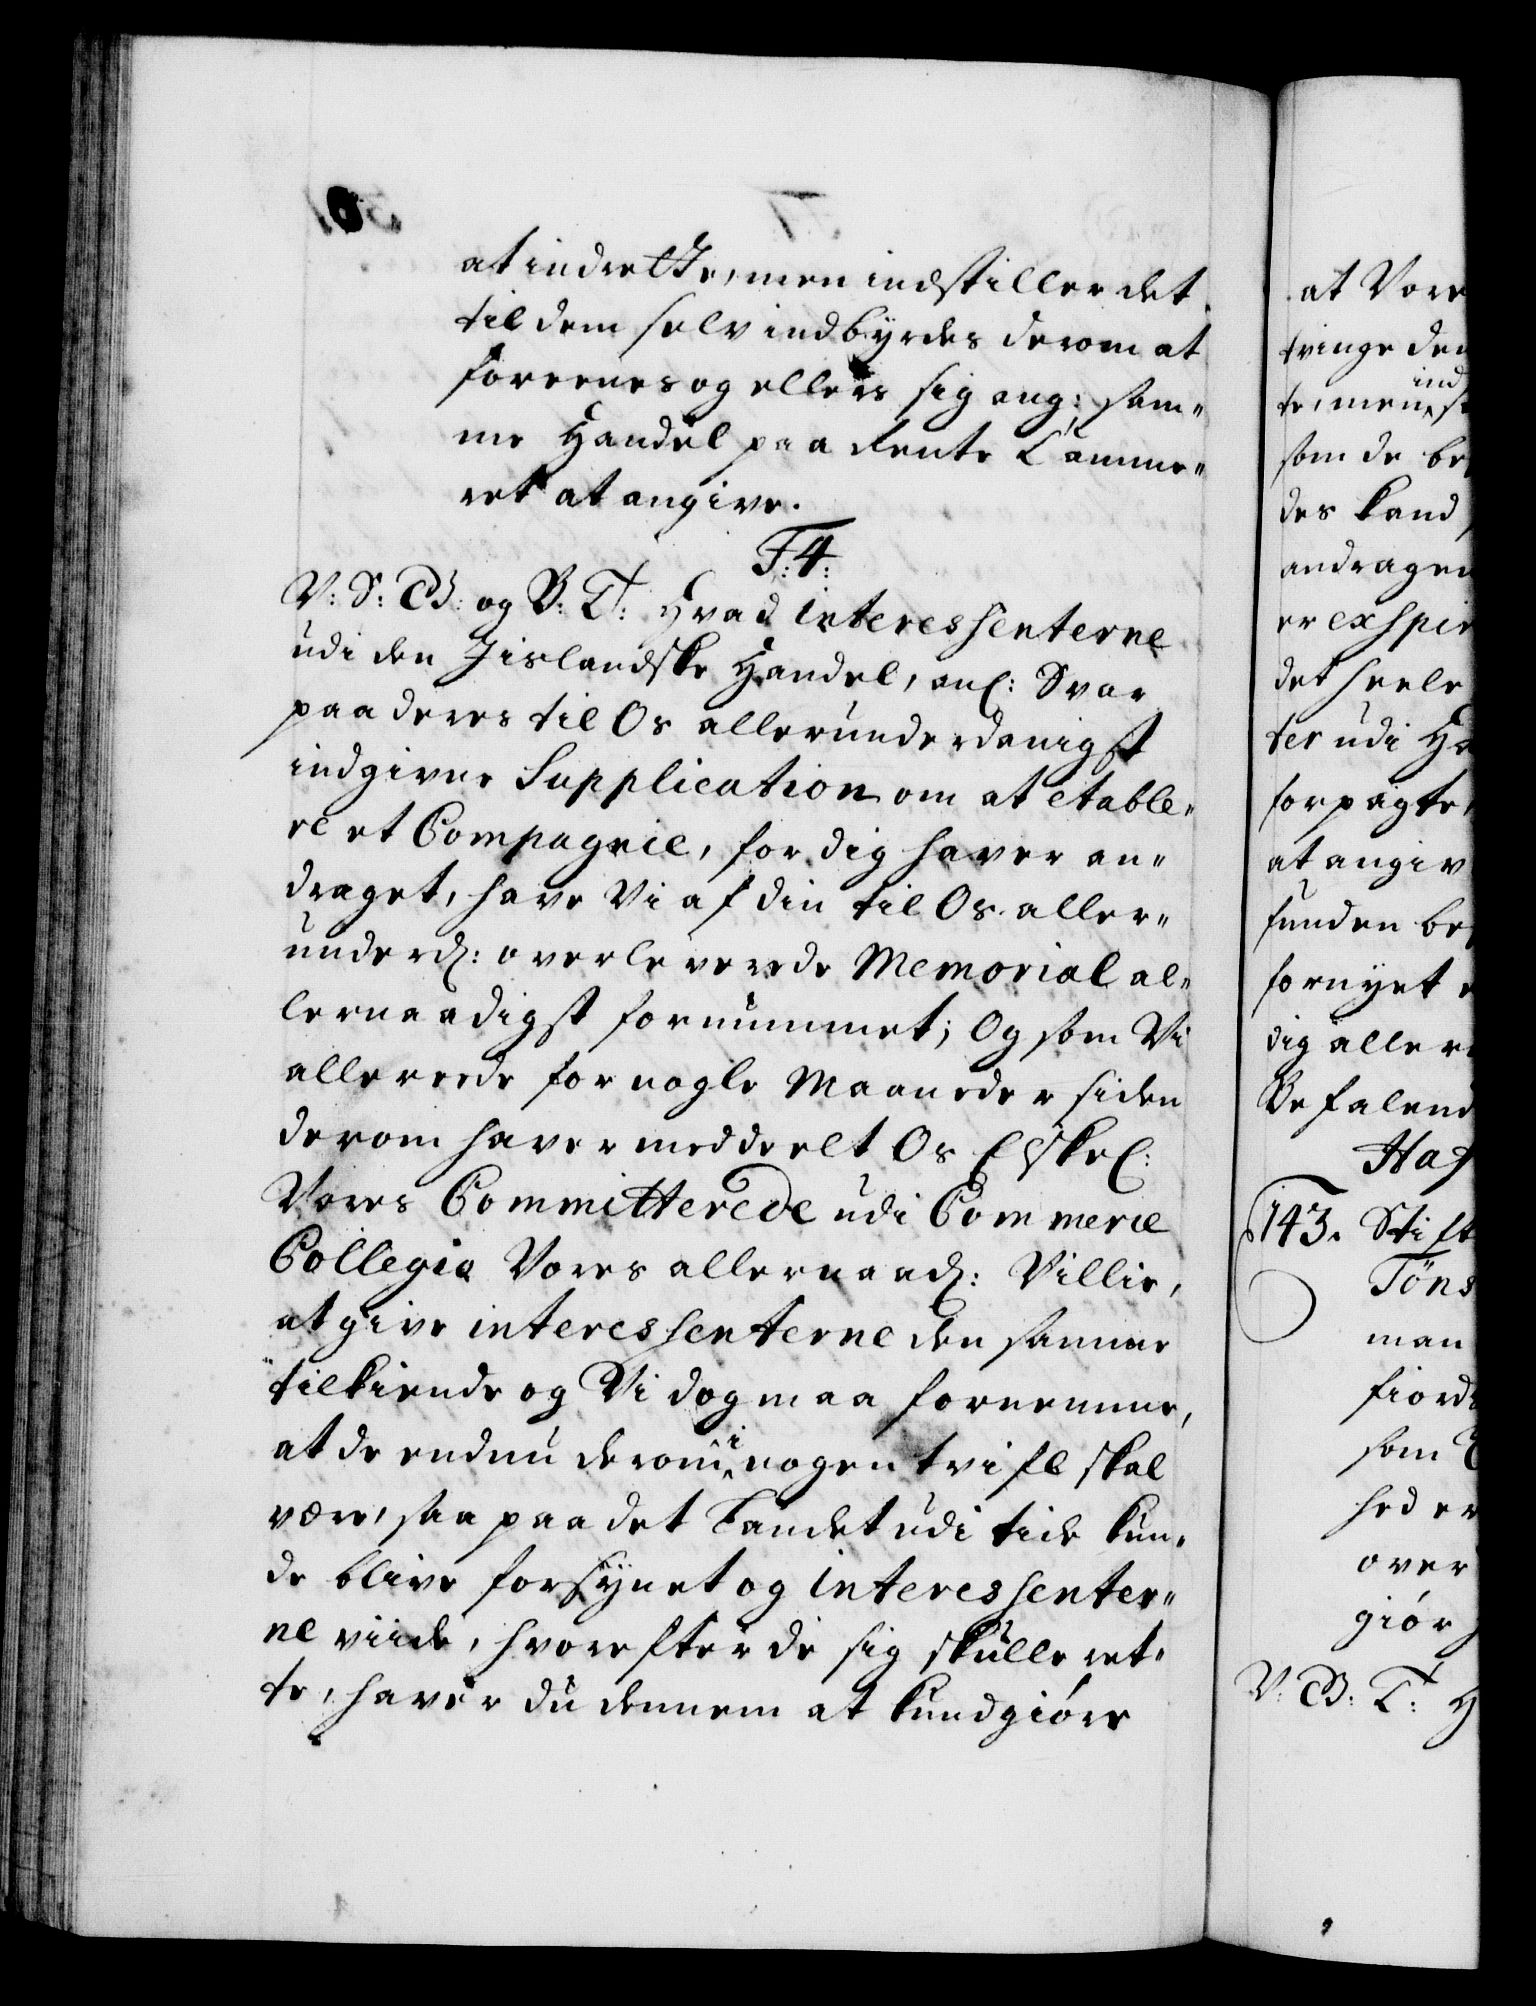 at indrette, men indstiller det
til dem selv indbyrdes derom at
foreenes og ellers sig ang: sam„
me Handel paa Rente Camme„
ret at angive.
F: 4:
V: S: G: og B: T: Hvad interessenterne
udi den Jislandske Handel, anl: Svar
paa deres til Os allerunderdanigst
indgivne Supplication om at etable„
re et Compagnie, for dig haver an„
draget, have Vi af din til Os aller„
underd: overleverede Memorial al„
lernaadigst fornummet; Og som Vi
allereede for nogle Maaneder siden
derom haver meddeelt Os Elskel:
Vores Committerede udi Commerce
Collegio Vores allernaad: Villie,
at give interessenterne den samme
tilkiende og Vi dog maa fornemme,
at de endnu derom i nogen tvifl skal
være, saa paa det Landet udi tide kun„
de blive forsynet og interessenter„
ne viide, hvorefter de sig skulle ret„
te, haver du dennem at kundgiøre
at Vore
tvinge den
te, men ind
som de be
des Land
andragen
er exspir
det heele
ter udi Ha
forpagte
at angiv
funden be
fornyet
dig allere
Befalend
Haf
143. Stift
Töns
man
fiord
som
hed er
over
giör
V: G: T: H